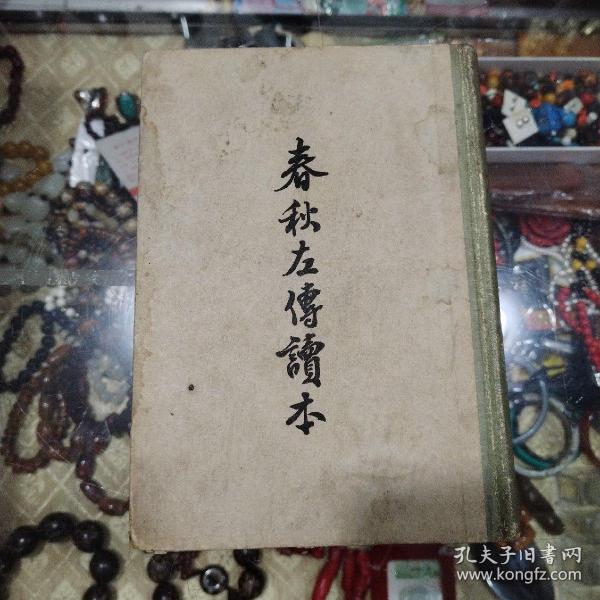 春秋左傳讀本
孔夫子旧书网
www.kongfz.com